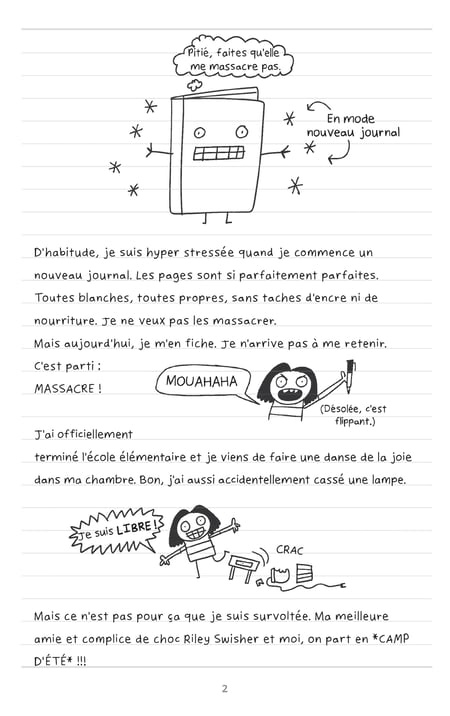 Pitié, faites qu'elle
me massacre pas.
En mode
nouveau journal
D'habitude, je suis hyper stressée quand je commence un
nouveau journal. Les pages sont si parfaitement parfaites.
Toutes blanches, toutes propres, sans taches d'encre ni de
nourriture. Je ne veux pas les massacrer.
Mais aujourd'hui, je m'en fiche. Je n'arrive pas à me retenir.
C'est parti :
MASSACRE !
MOUAHAHA
(Désolée, c'est
flippant.)
J'ai officiellement
terminé l'école élémentaire et je viens de faire une danse de la joie
dans ma chambre. Bon, j'ai aussi accidentellement cassé une lampe.
Je suis LIBRE !
CRAC
Mais ce n'est pas pour ça que je suis survoltée. Ma meilleure
amie et complice de choc Riley Swisher et moi, on part en *CAMP
D'ÉTÉ* !!!
2